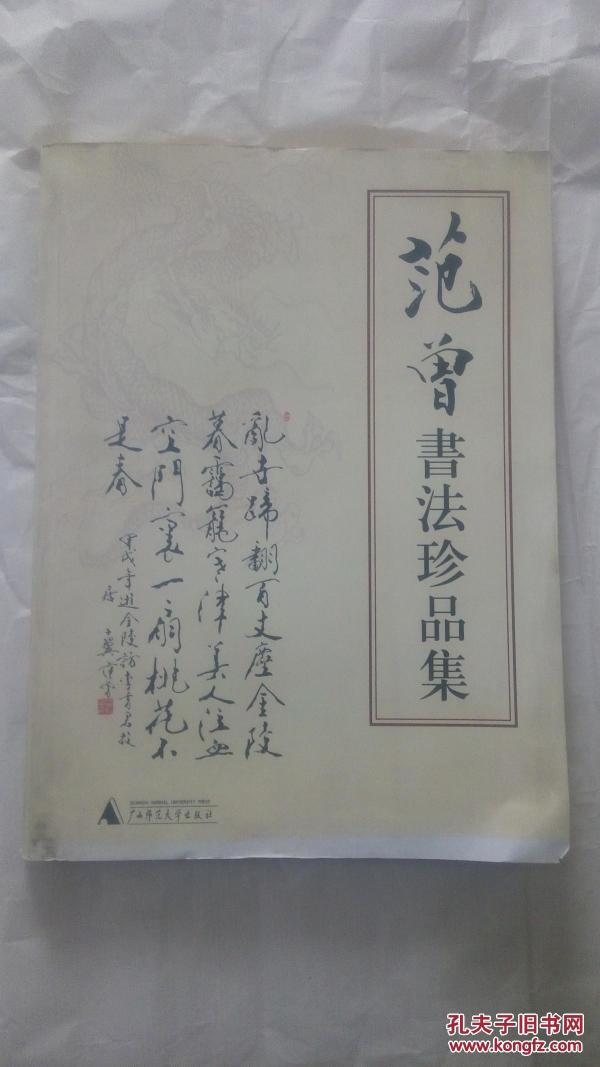 范曾書法珍品集
亂世蹄翻百丈塵金陵
暮靄籠寒津美人泣血
空門裏一扇桃花不
是春
甲戌年遊金陵訪李香君故
居 十翼范曾
GUANGXI NORMAL UNIVERSITY PRESS
广西师范大学出版社
孔夫子旧书网
www.kongfz.com